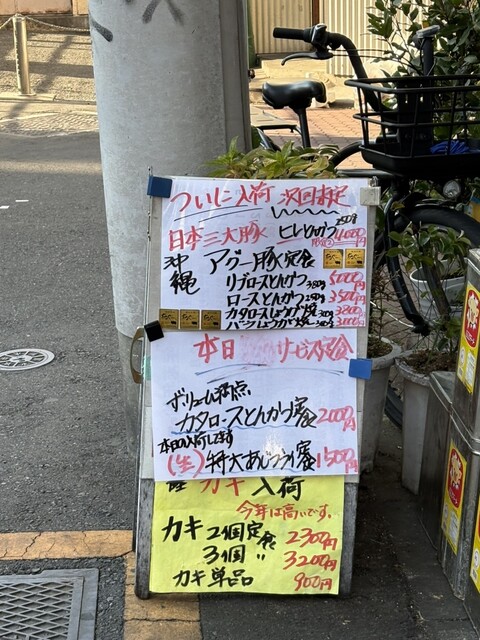 ついに入荷 次回未定
日本三大豚 ヒレとかつ 250g 4000円
沖縄 アグー豚定食
リブロースとんかつ 380g 5000円
ロースとんかつ 250g 3500円
カタロースしょうが焼 300g 3800円
バラしょうが焼 300g 3000円
本日 サービス定食
ボリューム満点
カタロースとんかつ定食 2000円
本日入荷してます
(生) 特大あじフライ定食 1500円
カキ 入荷
今年は高いです。
カキ 2個定食 2300円
3個 〃 3200円
カキ単品 900円